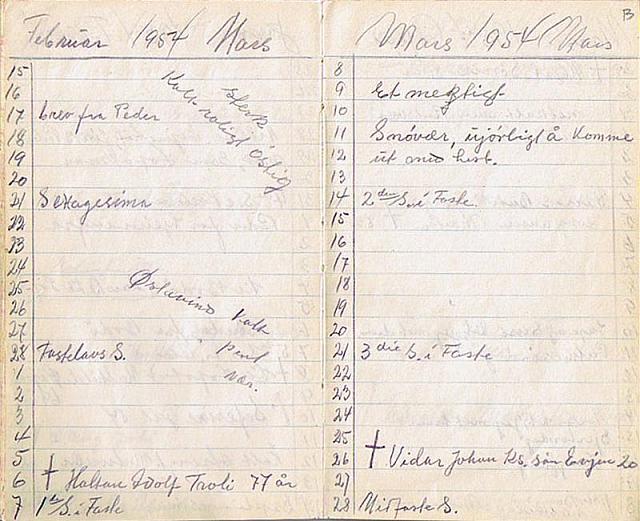 Februar 1954 Mars
15
16
17 brev fra Peder
18
19
20
21 Sexagesima
22
23
24
25
26
27
28 Fastelavs S.
1
2
3
4
5
6 † Haltan Adolf Troli 77 år
7 1ste S. i Faste
Kalt roligt østlig
sterk
Østavind kalt
pent
vær.
B
Mars 1954 Mars
8
9 Et
10
11 Snövær, ujörligt å komme
12 ut hest.
13
14 2den S. i Faste
15
16
17
18
19
20
21 3die S. i Faste
22
23
24
25
26 † Vidar Johan Ks. sön Evjen 20
27
28 Midfaste S.